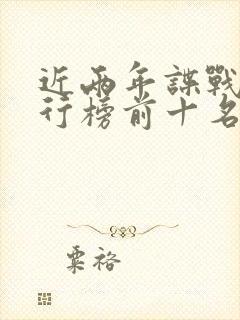 近兩年諜戰
行榜前十名
粟裕